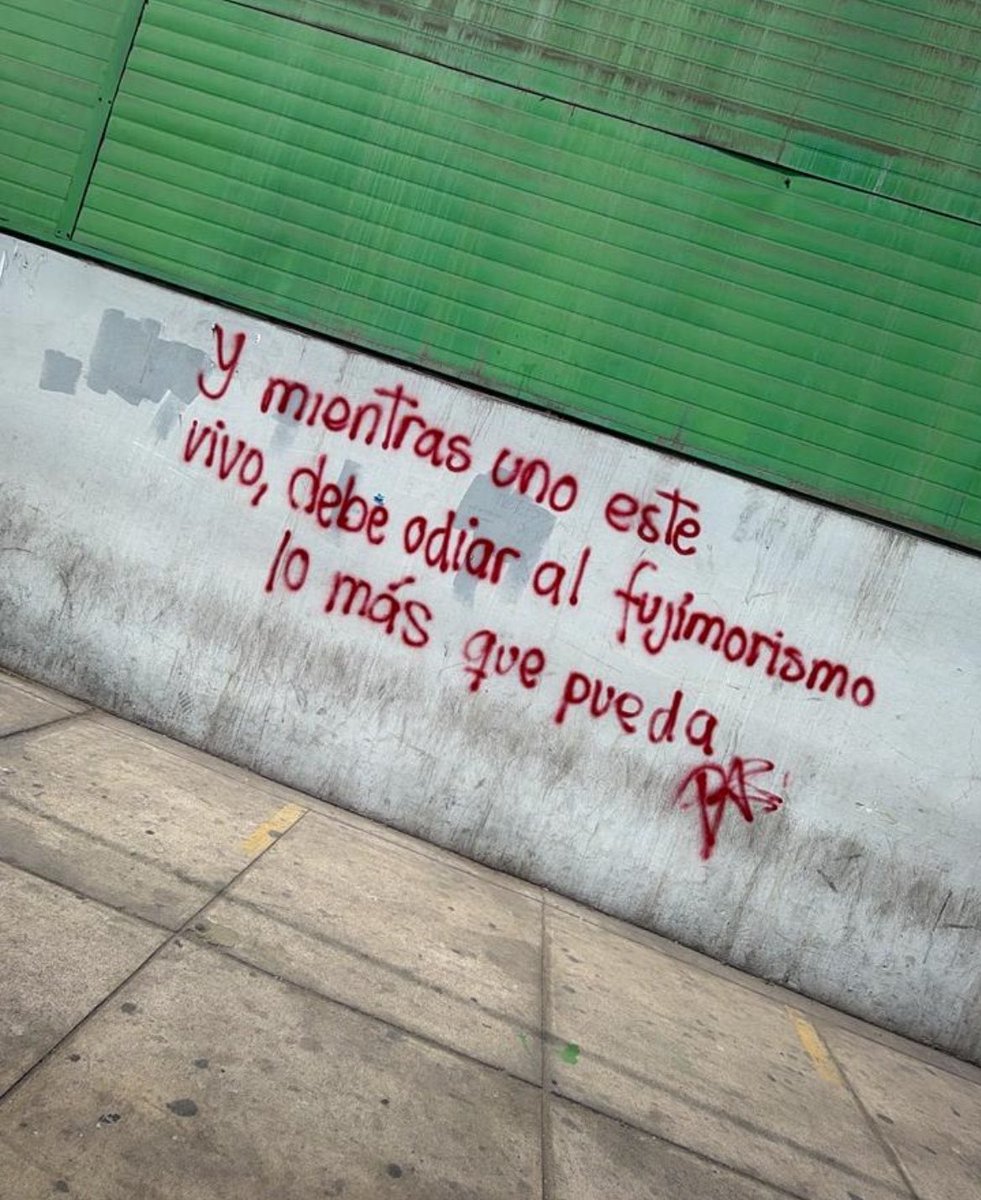 y mientras uno este
vivo, debe odiar al fujimorismo
lo más que pueda